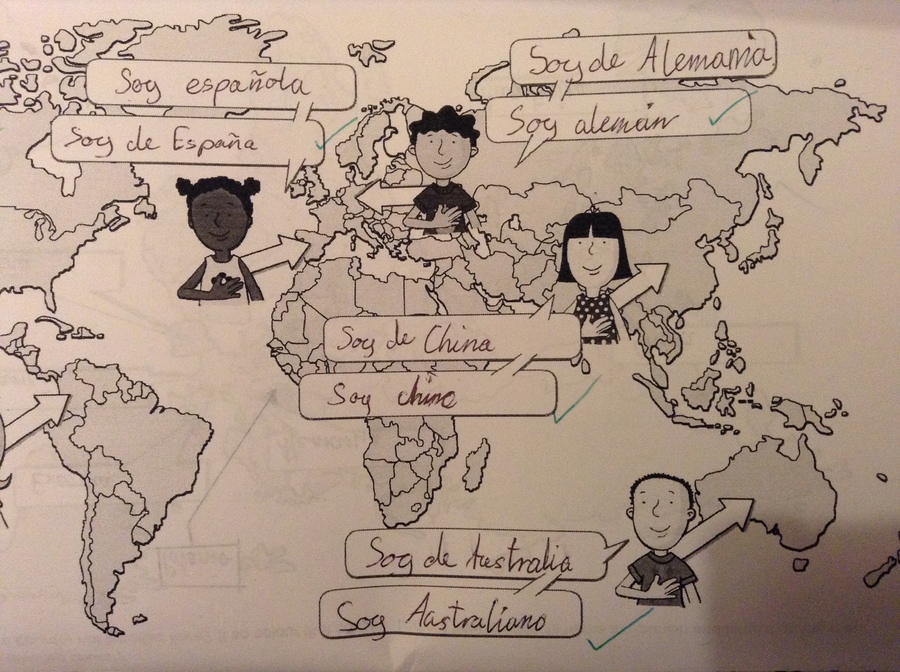 Soy española
Soy de España
Soy de Alemania
Soy alemán
Soy de China
Soy china
Soy de Australia
Soy Australiano